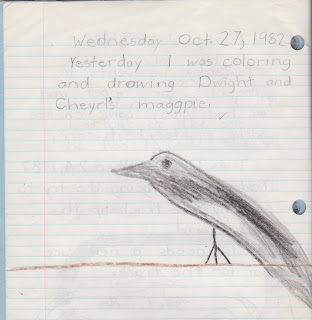 Wednesday Oct. 27, 1982
Yesterday I was coloring
and drowing Dwight and
Cheyrl's maggpie.